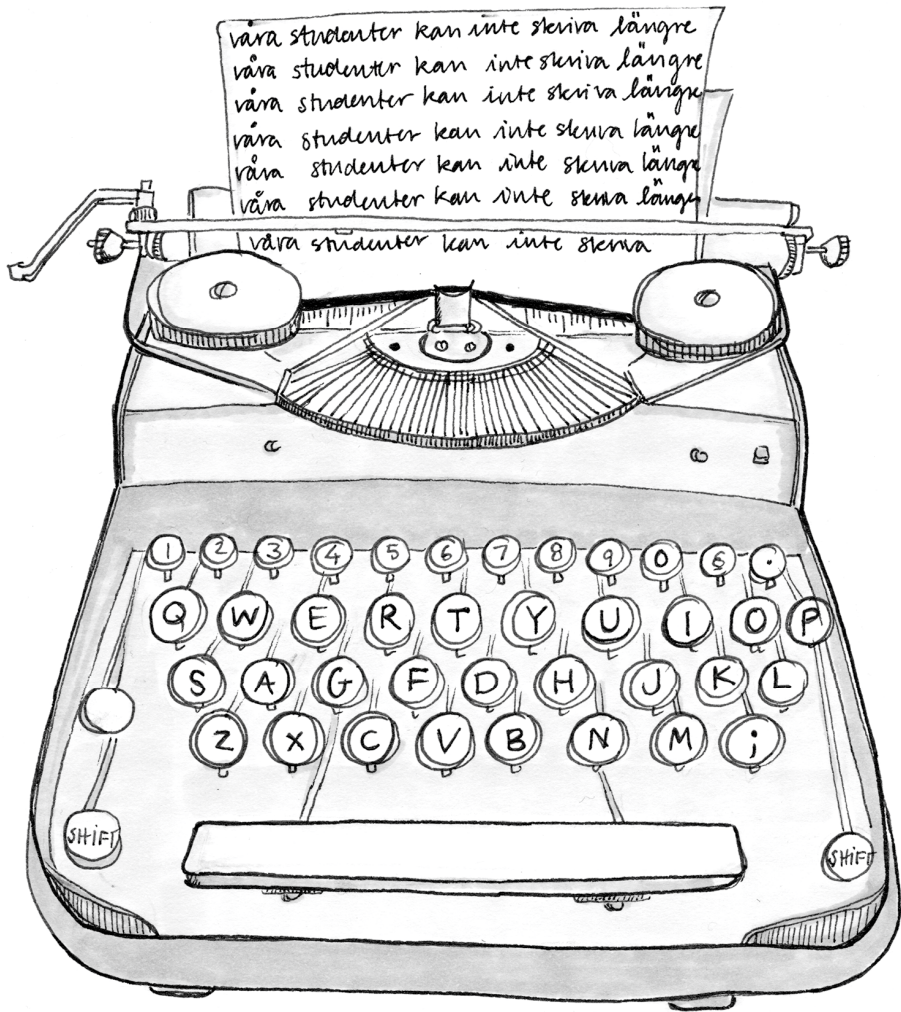 våra studenter kan inte skriva längre
våra studenter kan inte skriva längre
våra studenter kan inte skriva längre
våra studenter kan inte skriva längre
våra studenter kan inte skriva längre
våra studenter kan inte skriva länge
våra studenter kan inte skriva
1 2 3 4 5 6 7 8 9 0 .
Q W E R T Y U I O P
S A G F D H J K L
Z X C V B N M ;
SHIFT SHIFT